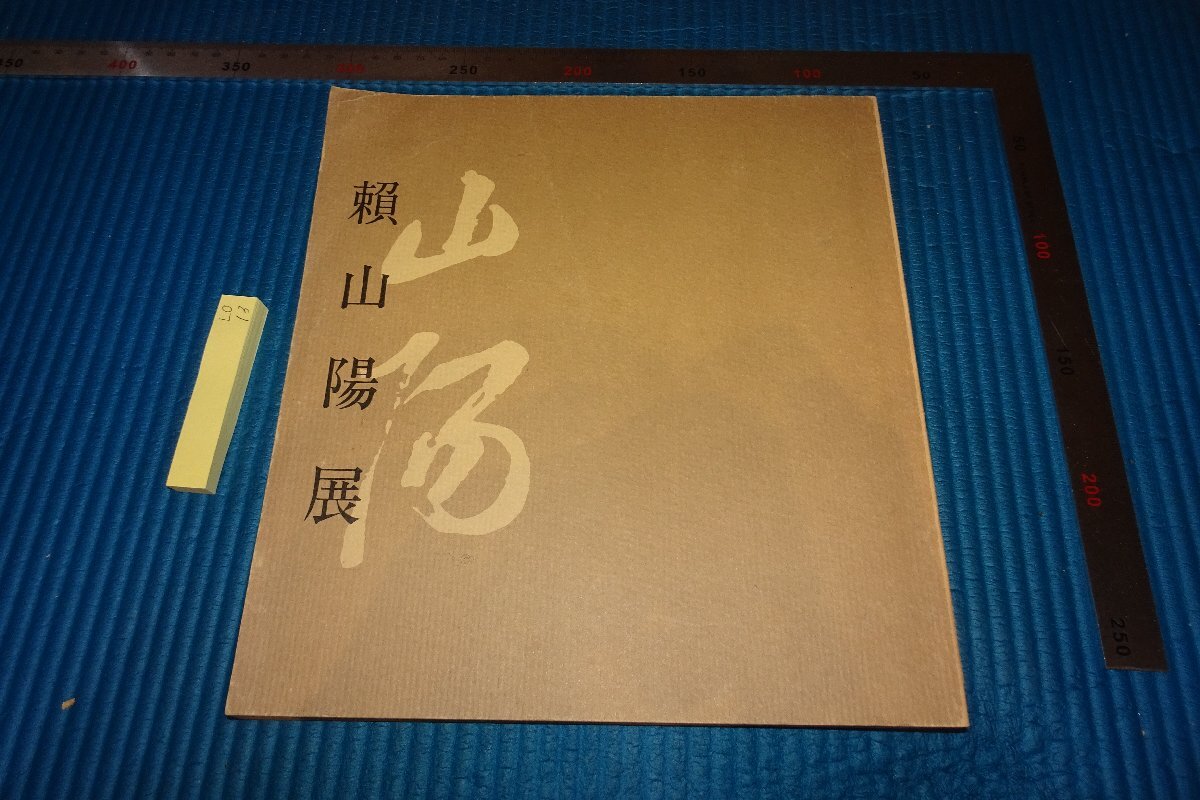 450 400 350 300 250 200 150 100 50
50
100
150
200
250
賴山陽展
山陽